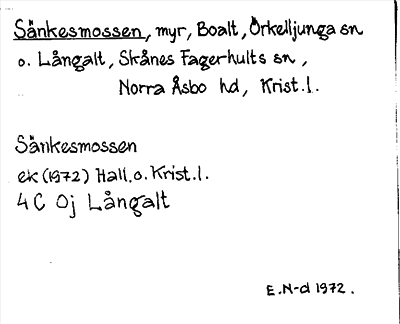 Sänkesmossen, myr, Boalt, Örkelljunga sn
o. Långalt, Skånes Fagerhults sn,
Norra Åsbo hd, Krist.l.
Sänkesmossen
ek (1972) Hall. o. Krist.l.
4 C Oj Långalt
E.N-d 1972.